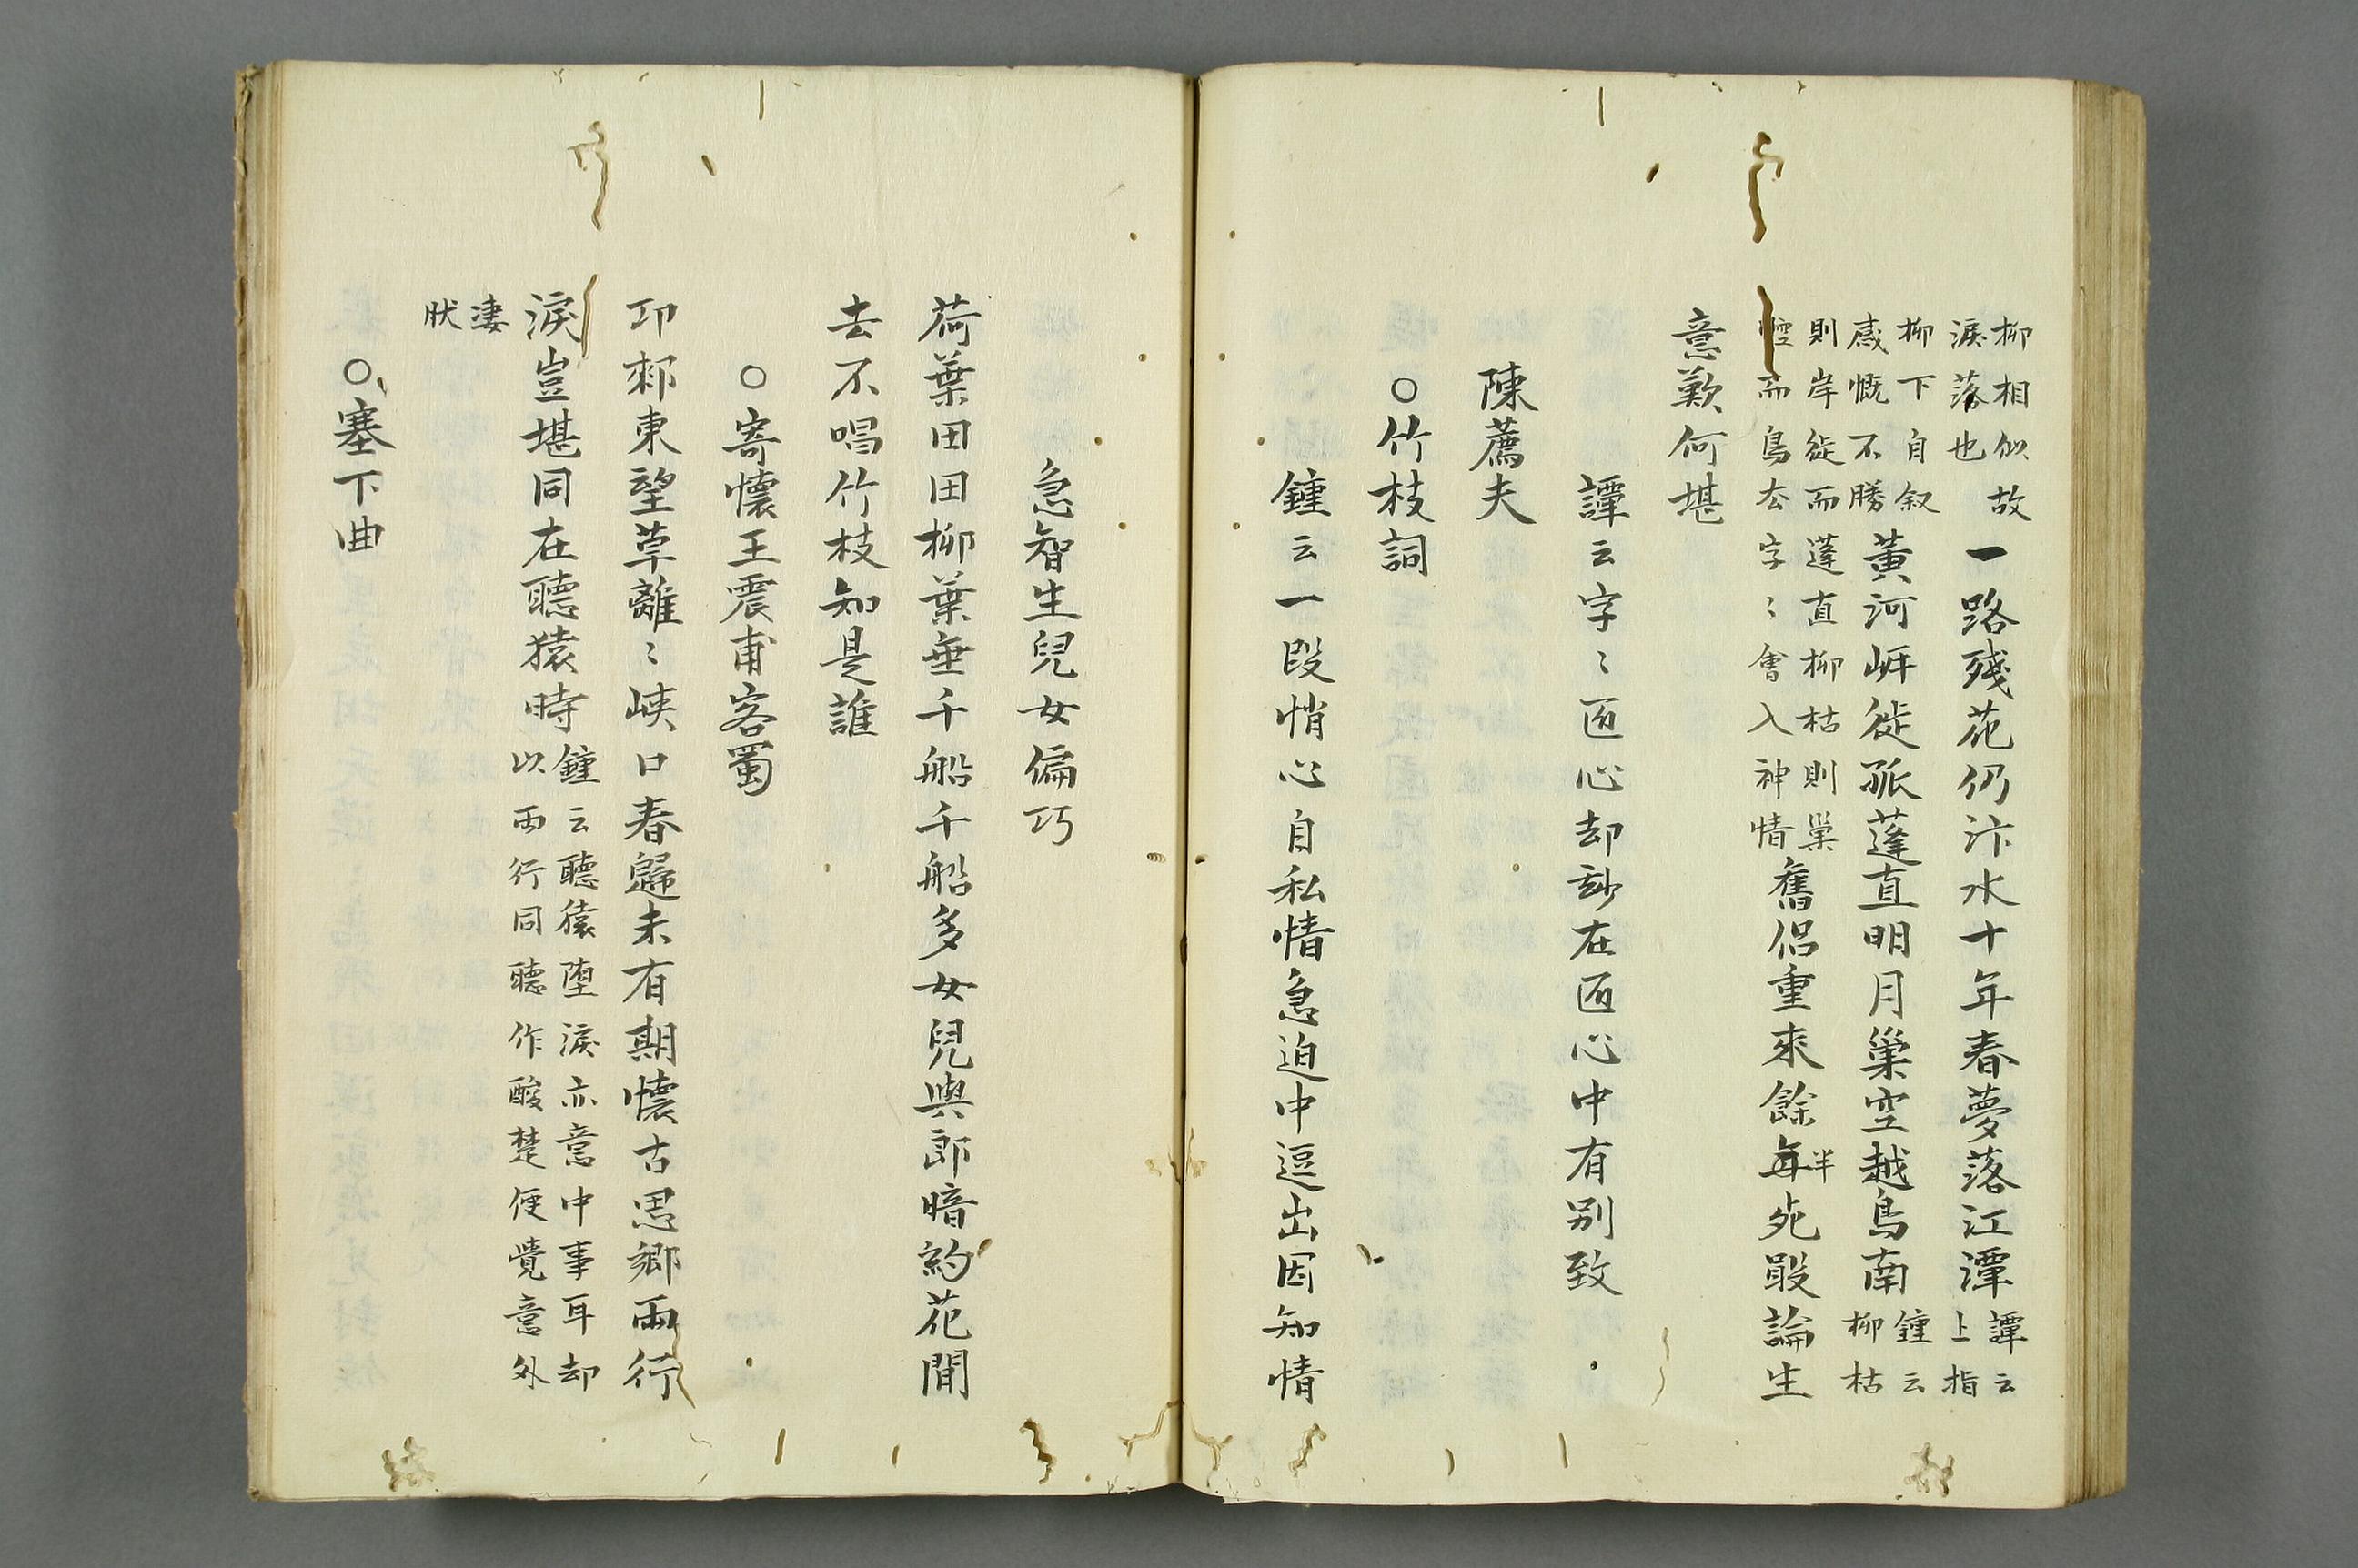 柳相似故
淚落也
一路殘花仍汴水十年春夢落江潭
譚云
上指
柳下自叙
感慨不勝
黃河岍徙孤蓬直明月巢空越鳥南
鍾云
柳枯
則岸徙而蓬直柳枯則巢
空而鳥厺字〻會入神情
舊侶重來餘每死敢論生
半
意歎何堪
譚云字〻匠心却玅在匠心中有别致
陳薦夫
○竹枝詞
鍾云一段悄心自私情急迫中逗出因知情
急智生兒女偏巧
荷葉田田柳葉垂千船千船多女兒與郎暗約花間
去不唱竹枝知是誰
○寄懷王震甫客蜀
邛郲東望草離〻峽口春歸未有期懷古思鄉兩行
淚豈堪同在聽猿時
鍾云聽猿墮淚亦意中事耳却
以兩行同聽作酸楚便覺意外
淒
肰
○塞下曲